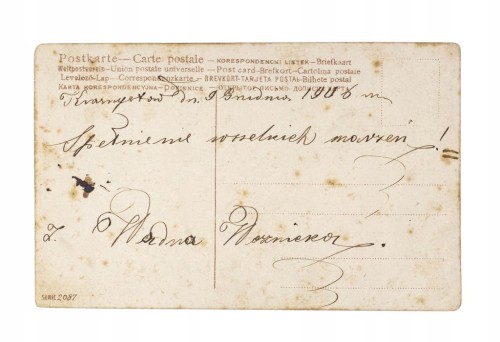 Postkarte — Carte postale — KORESPONDENČNI LISTEK — Briefkaart
Weltpostverein — Union postale universelle — Post card - Brefkort - Cartolina postale
Levelező-Lap — Correspondenzkarte — BREVKORT-TARJETA POSTAL - Bilhete postal
KARTA KORESPONDENCYJNA — DOPISNICE — ОТКРЫТОЕ ПИСЬМО
dn. 9 Grudnia 1906 r.
Spełnienie wszelkich marzeń!
Woźnicka.
2087